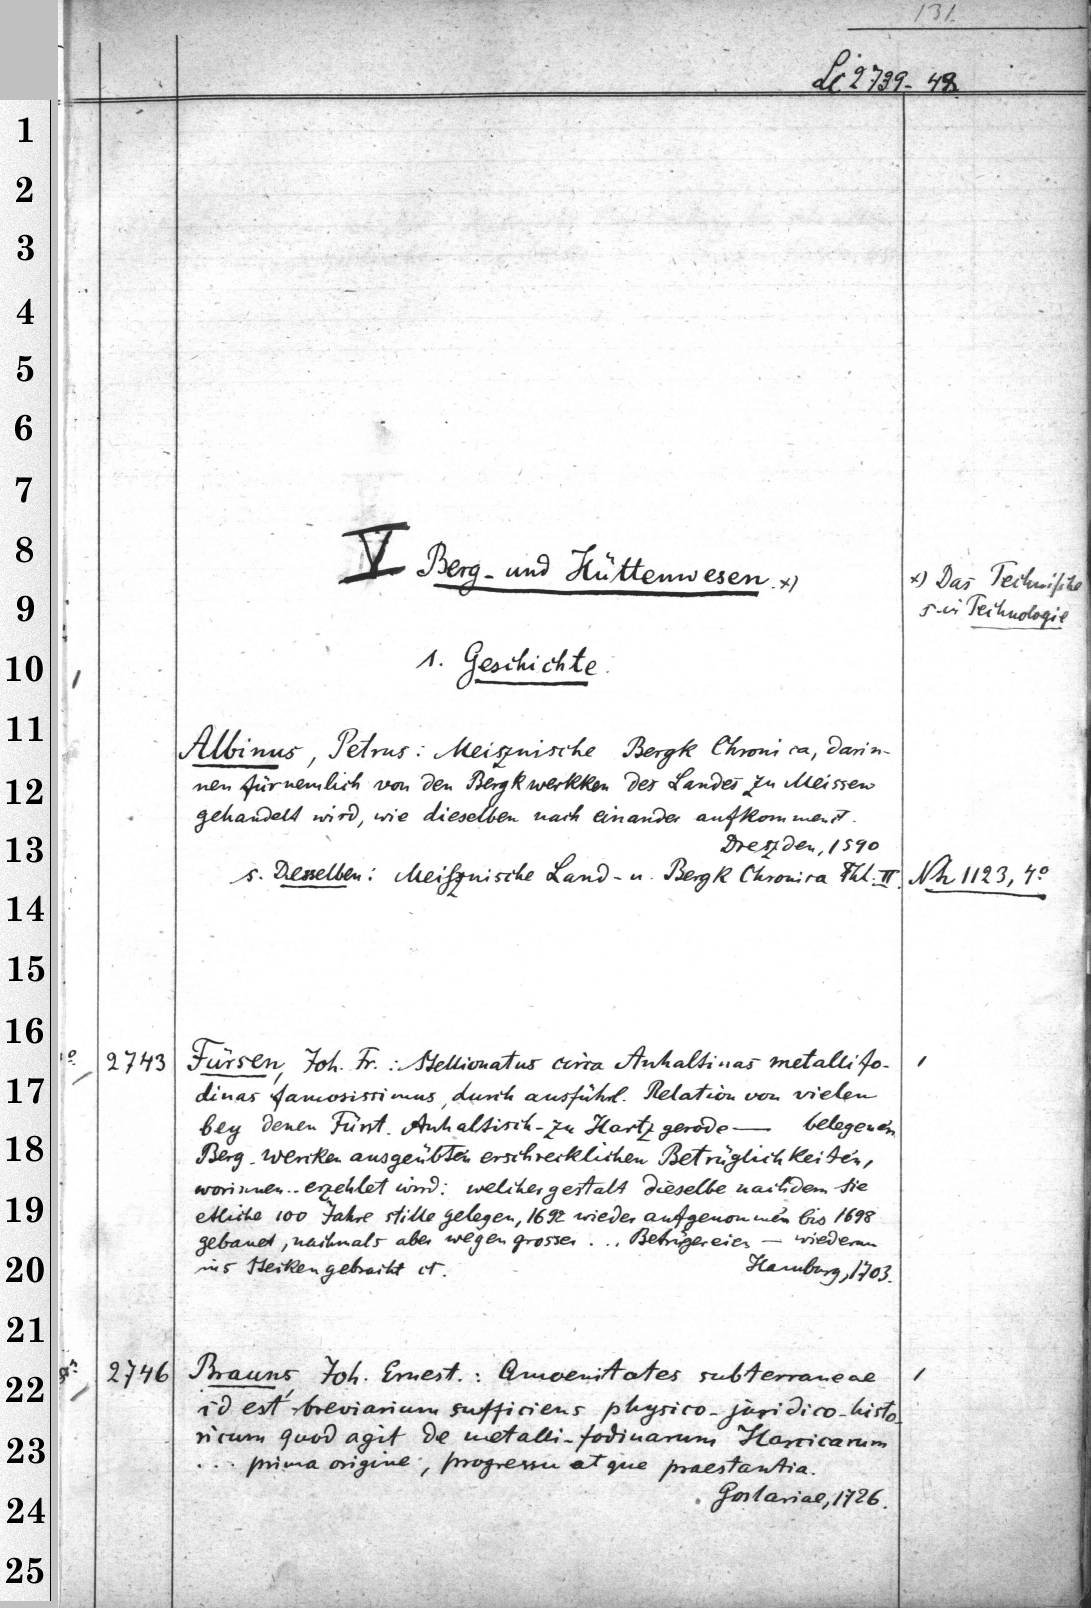 131.
Lc 2739-48
V Berg- und Hüttenwesen. x)
x) Das Technische
s. in Technologie
1. Geschichte.
Albinus, Petrus: Meisznische Bergk Chronica, darin-
nen fürnemlich von den Bergkwerkken des Landes zu Meissen
gehandelt wird, wie dieselben nach einander aufkommen.
Dreszden, 1590
s. Desselben: Meisznische Land- u. Bergk Chronica Thl. II.
Nh 1123, 4°
2743 Fürsen, Joh. Fr.: Stellionatus circa Anhaltinas metallifo-
dinas famosissimus, durch ausführl. Relation von vielen
bey denen Fürst. Anhaltisch-zu Hartzgerode — belegenen
Berg-wercken ausgeübten erschrecklichen Betrüglichkeiten,
worinnen.. erzehlet wird: welchergestalt dieselbe nachdem sie
etliche 100 Jahre stille gelegen, 1692 wieder aufgenommen bis 1698
gebauet, nachmals aber wegen grosser ... Betrügereien — wiederum
ins Stecken gebracht
Hamburg, 1703.
2746 Brauns, Joh. Ernest.: Amoenitates subterraneae
id est breviarium sufficiens physico-juridico-histo-
ricum quod agit de metalli-fodinarum Harcicarum
... prima origine, progressu atque praestantia.
Goslariae, 1726.
1
2
3
4
5
6
7
8
9
10
11
12
13
14
15
16
17
18
19
20
21
22
23
24
25